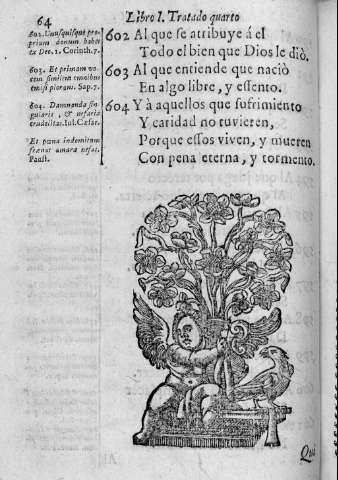 64
Libro I. Tratado quarto
602. Unusquisque pro
prium donum habet
ex Deo. 1. Corinth. 7.
603. Et primam vo
cem similem omnibus
emisi plorans. Sap. 7.
604. Damnanda sin
gularis, & nefaria
crudelitas. Iul. Cæsar.
Et pœna indomitum
frænat amara nefas.
Faust.
602 Al que se atribuye á el
Todo el bien que Dios le diò.
603 Al que entiende que naciò
En algo libre, y essento.
604 Y à aquellos que sufrimiento
Y caridad no tuvieren,
Porque essos viven, y mueren
Con pena eterna, y tormento.
Qui